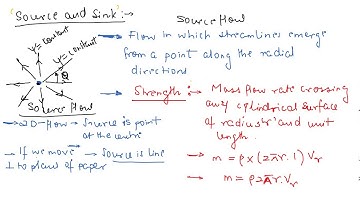 Source and Sink :-
Source flow
ψ = constant
ψ = constant
θ
Source flow
→ Flow in which streamlines emerge
from a point along the radial
directions
→ Strength :→ Mass flow rate crossing
any cylindrical surface
of radius 'r' and unit
length.
→ 2D-flow → Source is point
at the centre
→ If we move → Source is line
⊥ to plane of paper
→ m = ρ × (2πr.1) Vr
→ m = ρ2πr.Vr